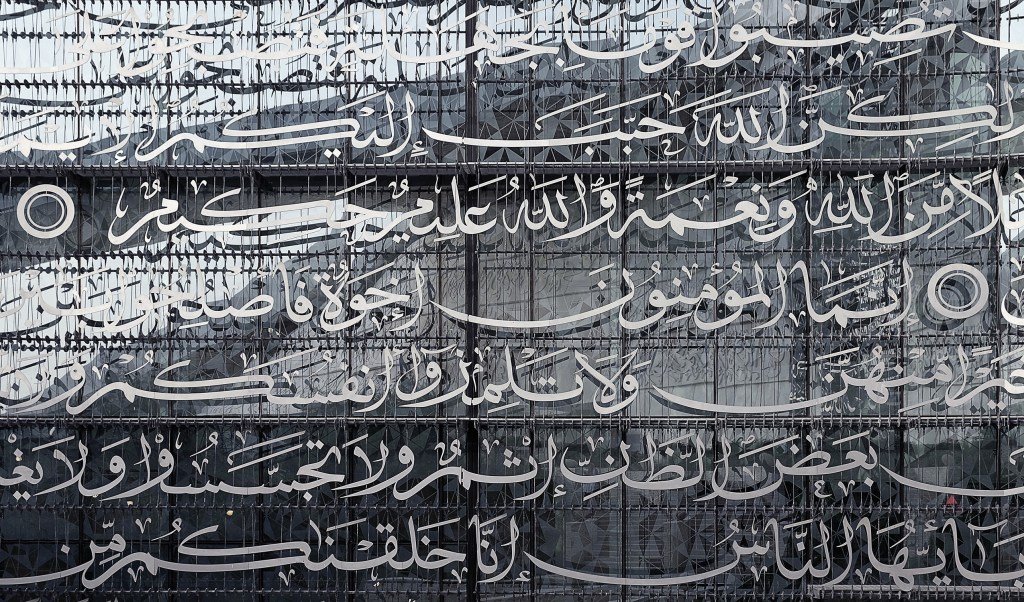 تُصِيبُوا۟ قَوْمًۢا بِجَهَٰلَةٍ فَتُصْبِحُوا۟
لَٰكِنَّ ٱللَّهَ حَبَّبَ إِلَيْكُمُ
مِّنَ ٱللَّهِ وَنِعْمَةً وَٱللَّهُ عَلِيمٌ حَكِيمٌ
إِنَّمَا ٱلْمُؤْمِنُونَ إِخْوَةٌ فَأَصْلِحُوا۟ بَيْنَ
خَيْرًا مِّنْهُنَّ وَلَا تَلْمِزُوٓا۟ أَنفُسَكُمْ وَلَا
بَعْضَ ٱلظَّنِّ إِثْمٌ وَلَا تَجَسَّسُوا۟ وَلَا
يَٰٓأَيُّهَا ٱلنَّاسُ إِنَّا خَلَقْنَٰكُم مِّن